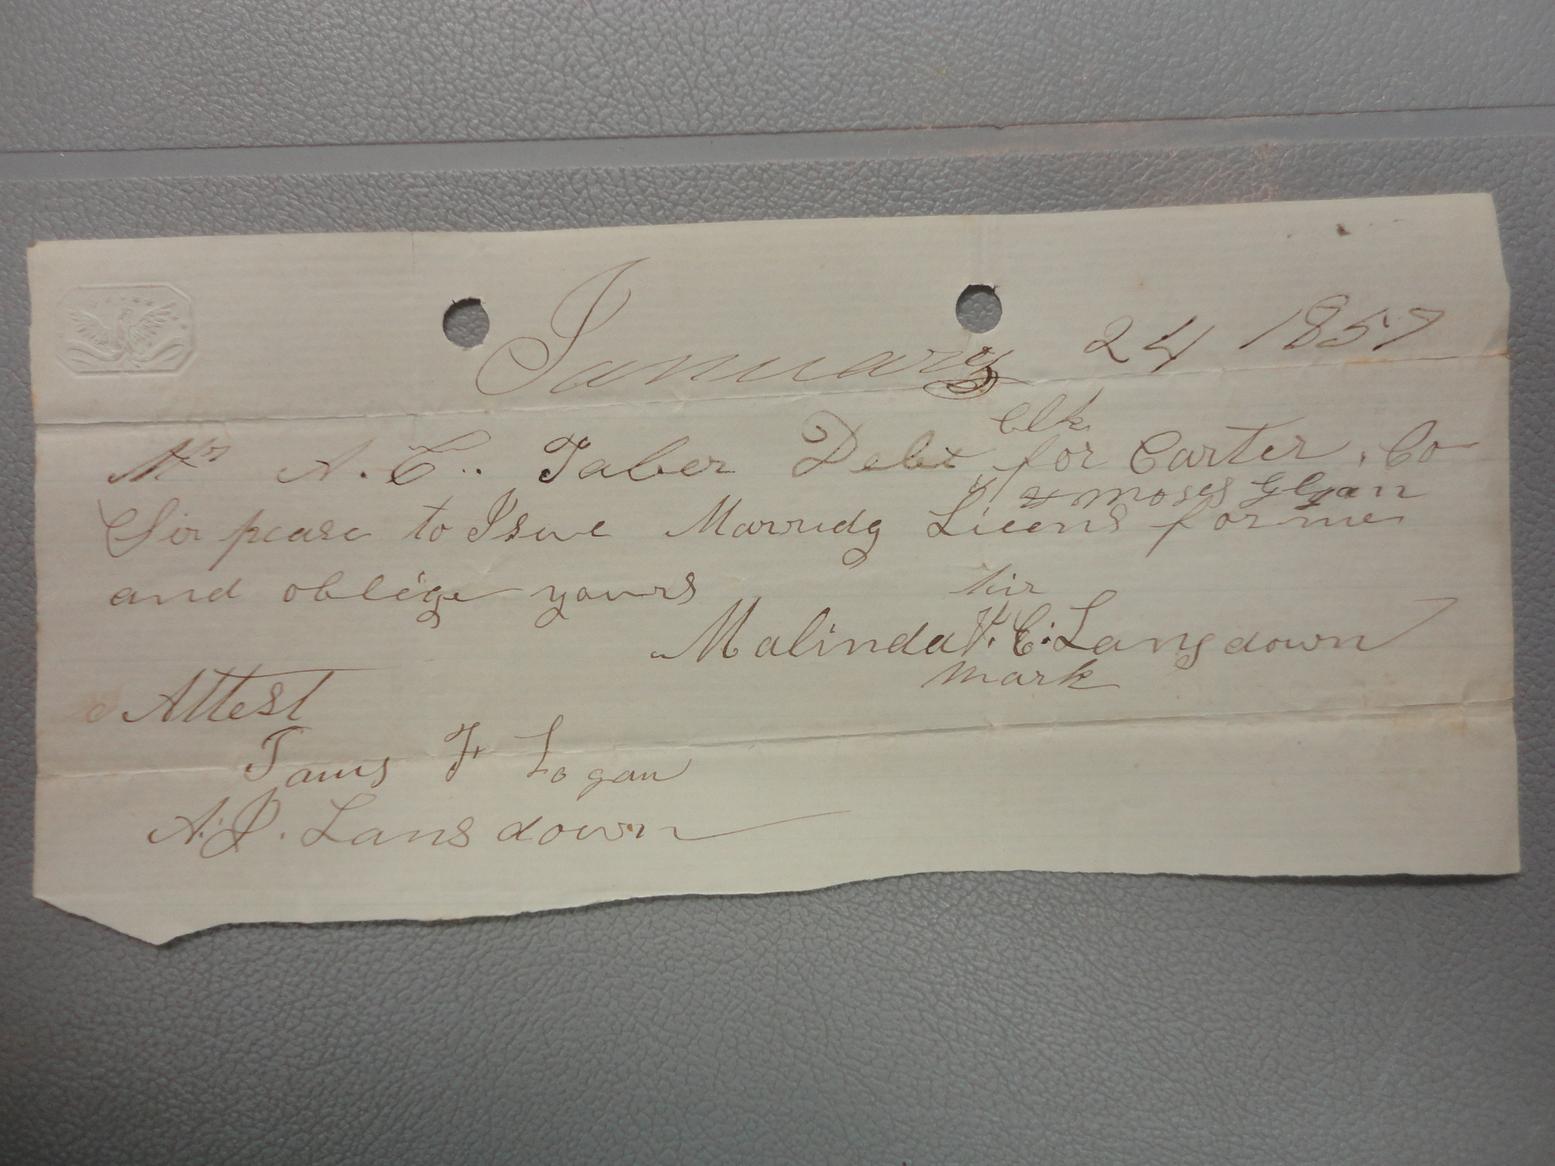 January 24 1857
Clk
Mr A. C. Taber Debt for Carter, Co
& Moses Glyan
Sir pease to Isue Marridg Licens for me
and oblige yours
hir
Malinda C. Langsdown
mark
Attest
Jams F Logan
A. J. Lansdown